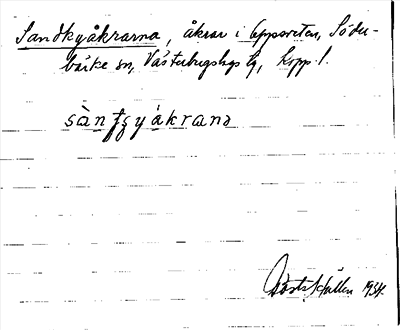 Sandkyåkrarna, åkrar i Uppsveten, Söder-
bärke sn, Västerbergslags tg, Kopp. l.
sàntʃyåkrana
Gösta Sjöllen 1934.